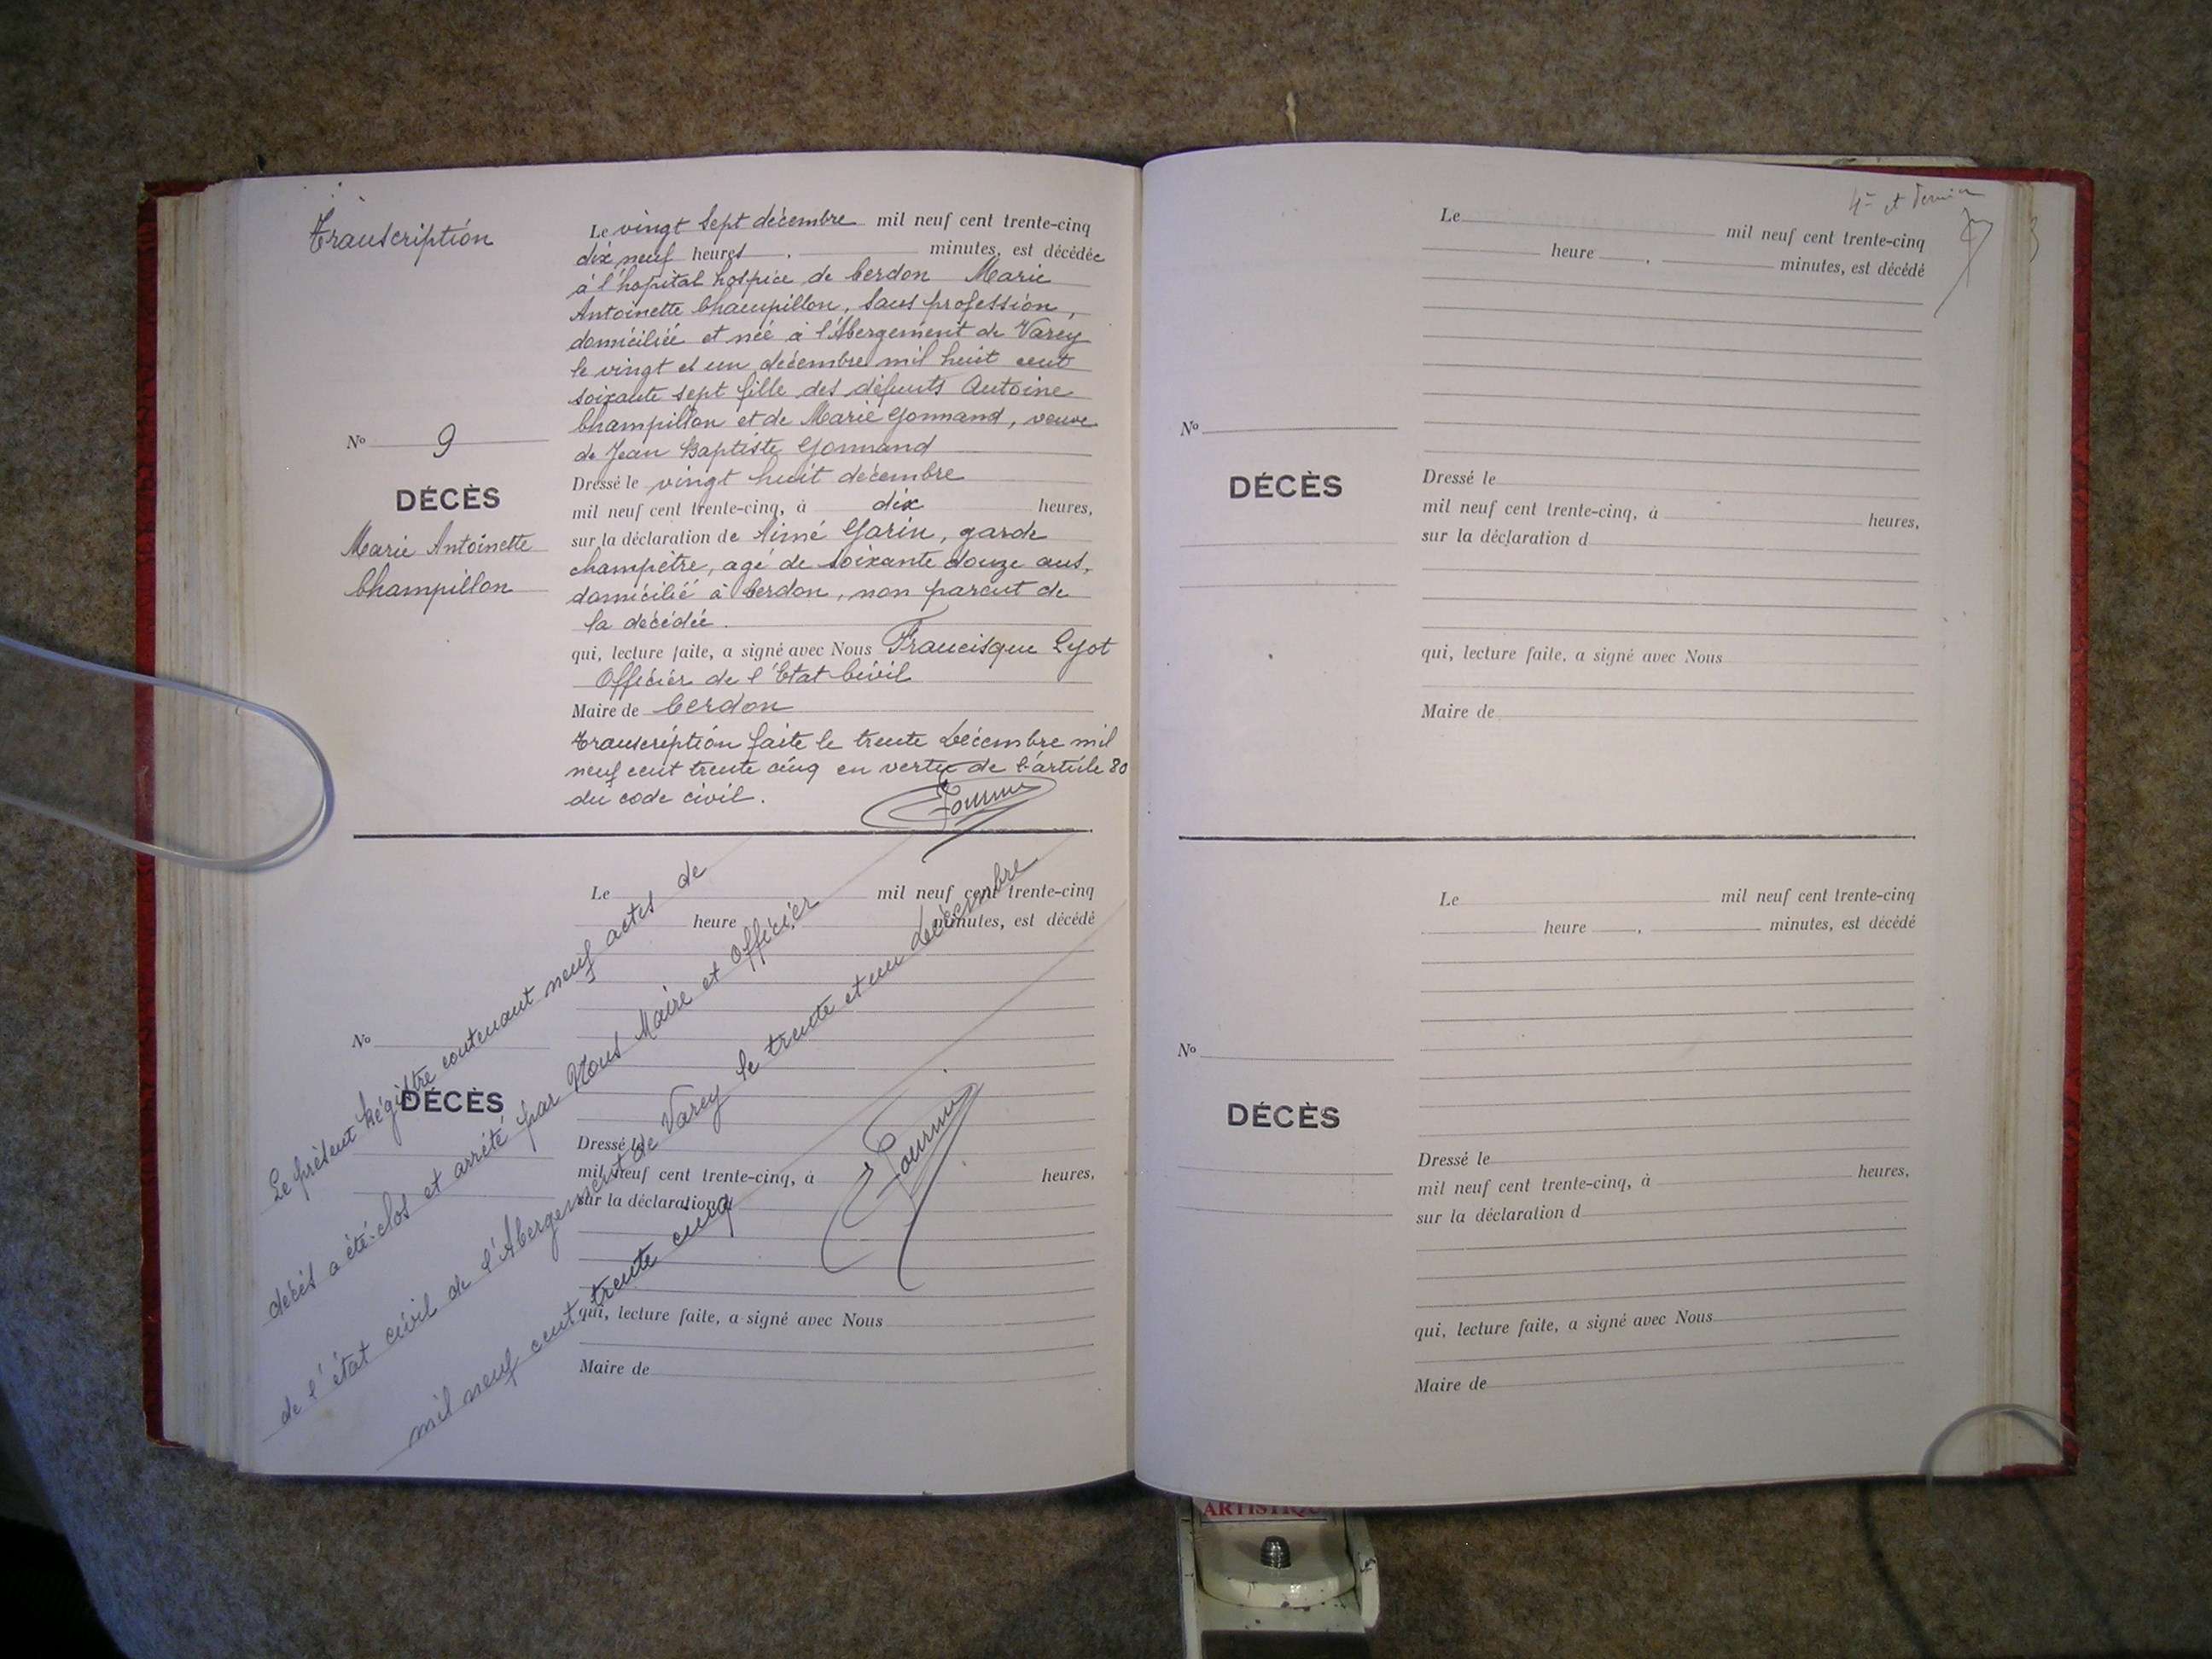 Transcription
Le vingt sept décembre mil neuf cent trente-cinq
dix neuf heures , minutes, est décédée
à l'hopital hospice de Cerdon Marie
Antoinette Champillon, sans profession,
domiciliée et née à l'Abergement de Varey
le vingt et un décembre mil huit cent
soixante sept fille des défunts Antoine
Champillon et de Marie Gonnand, veuve
de Jean Baptiste Gonnand
No 9
DÉCÈS
Marie Antoinette
Champillon
Dressé le vingt huit décembre
mil neuf cent trente-cinq, à dix heures,
sur la déclaration de Aimé Garin, garde
champêtre, agé de soixante douze ans,
domicilié à Cerdon, non parent de
la décédée.
qui, lecture faite, a signé avec Nous Francisque Lyot
Officier de l'Etat-Civil
Maire de Cerdon
Transcription faite le trente Décembre mil
neuf cent trente cinq en vertu de l'article 80
du code civil.
Le mil neuf cent trente-cinq
heure , minutes, est décédé
No
DÉCÈS
Dressé le
mil neuf cent trente-cinq, à heures,
sur la déclaration d
qui, lecture faite, a signé avec Nous
Maire de
Le présent Régistre contenant neuf actes de
décès a été clos et arrêté par Nous Maire et Officier
de l'état civil de l'Abergement de Varey le trente et un Décembre
mil neuf cent trente cinq
4e et dernier
Le mil neuf cent trente-cinq
heure , minutes, est décédé
No
DÉCÈS
Dressé le
mil neuf cent trente-cinq, à heures,
sur la déclaration d
qui, lecture faite, a signé avec Nous
Maire de
Le mil neuf cent trente-cinq
heure , minutes, est décédé
No
DÉCÈS
Dressé le
mil neuf cent trente-cinq, à heures,
sur la déclaration d
qui, lecture faite, a signé avec Nous
Maire de